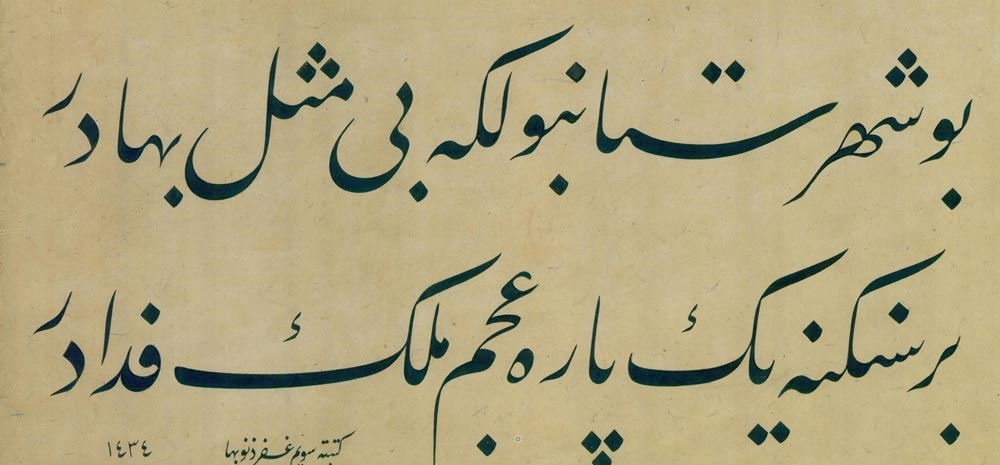 بو شهر ستانبولكه بی مثل بهادر
بر سنكنه یك پاره عجم ملكی فدادر
كتبته سویم غفر ذنوبها ١٤٣٤